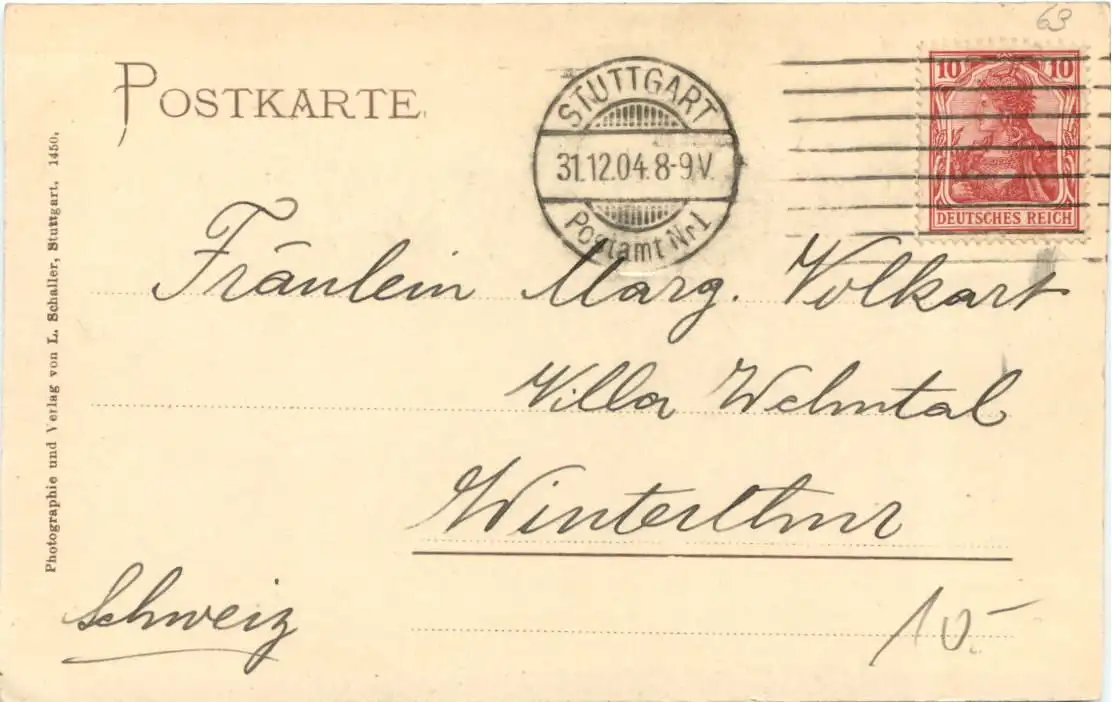 63
POSTKARTE
STUTTGART
31.12.04. 8-9 V.
Postamt Nr 1
10 10
DEUTSCHES REICH
Fräulein Marg. Volkart
Villa Wehntal
Winterthur
Schweiz
10.-
Photographie und Verlag von L. Schaller, Stuttgart. 1450.